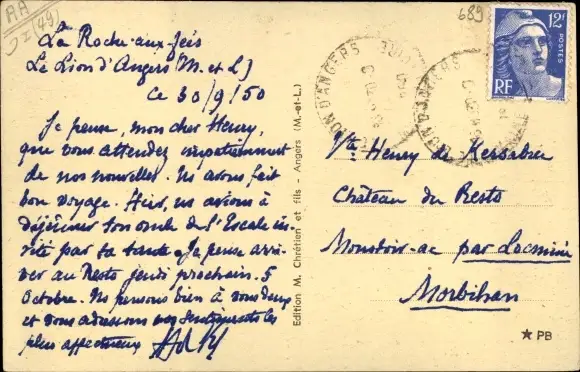 AA
I (49)
689
12F
RF
La Roche-aux-Jeis
Le Lion d'Angers (M. et L)
Ce 30/9/50
Je pense, mon cher Henry,
que vous attendez impatiemment
de nos nouvelles. Ns avons fait
bon voyage. Hier, ns avions à
déjeûner ton oncle de l'Escale in-
vité par ta tante. Je pense arri-
ver au Resto jeudi prochain 5
Octobre. Ns pensons bien à vous deux
et vous adressons nos sentiments les
plus affectueux
Edition M. Chrétien et fils - Angers (M.-et-L.)
LION D'ANGERS
Vte Henry de Kersabiec
Château du Resto
Moustoir-ac par Locminé
Morbihan
★ PB